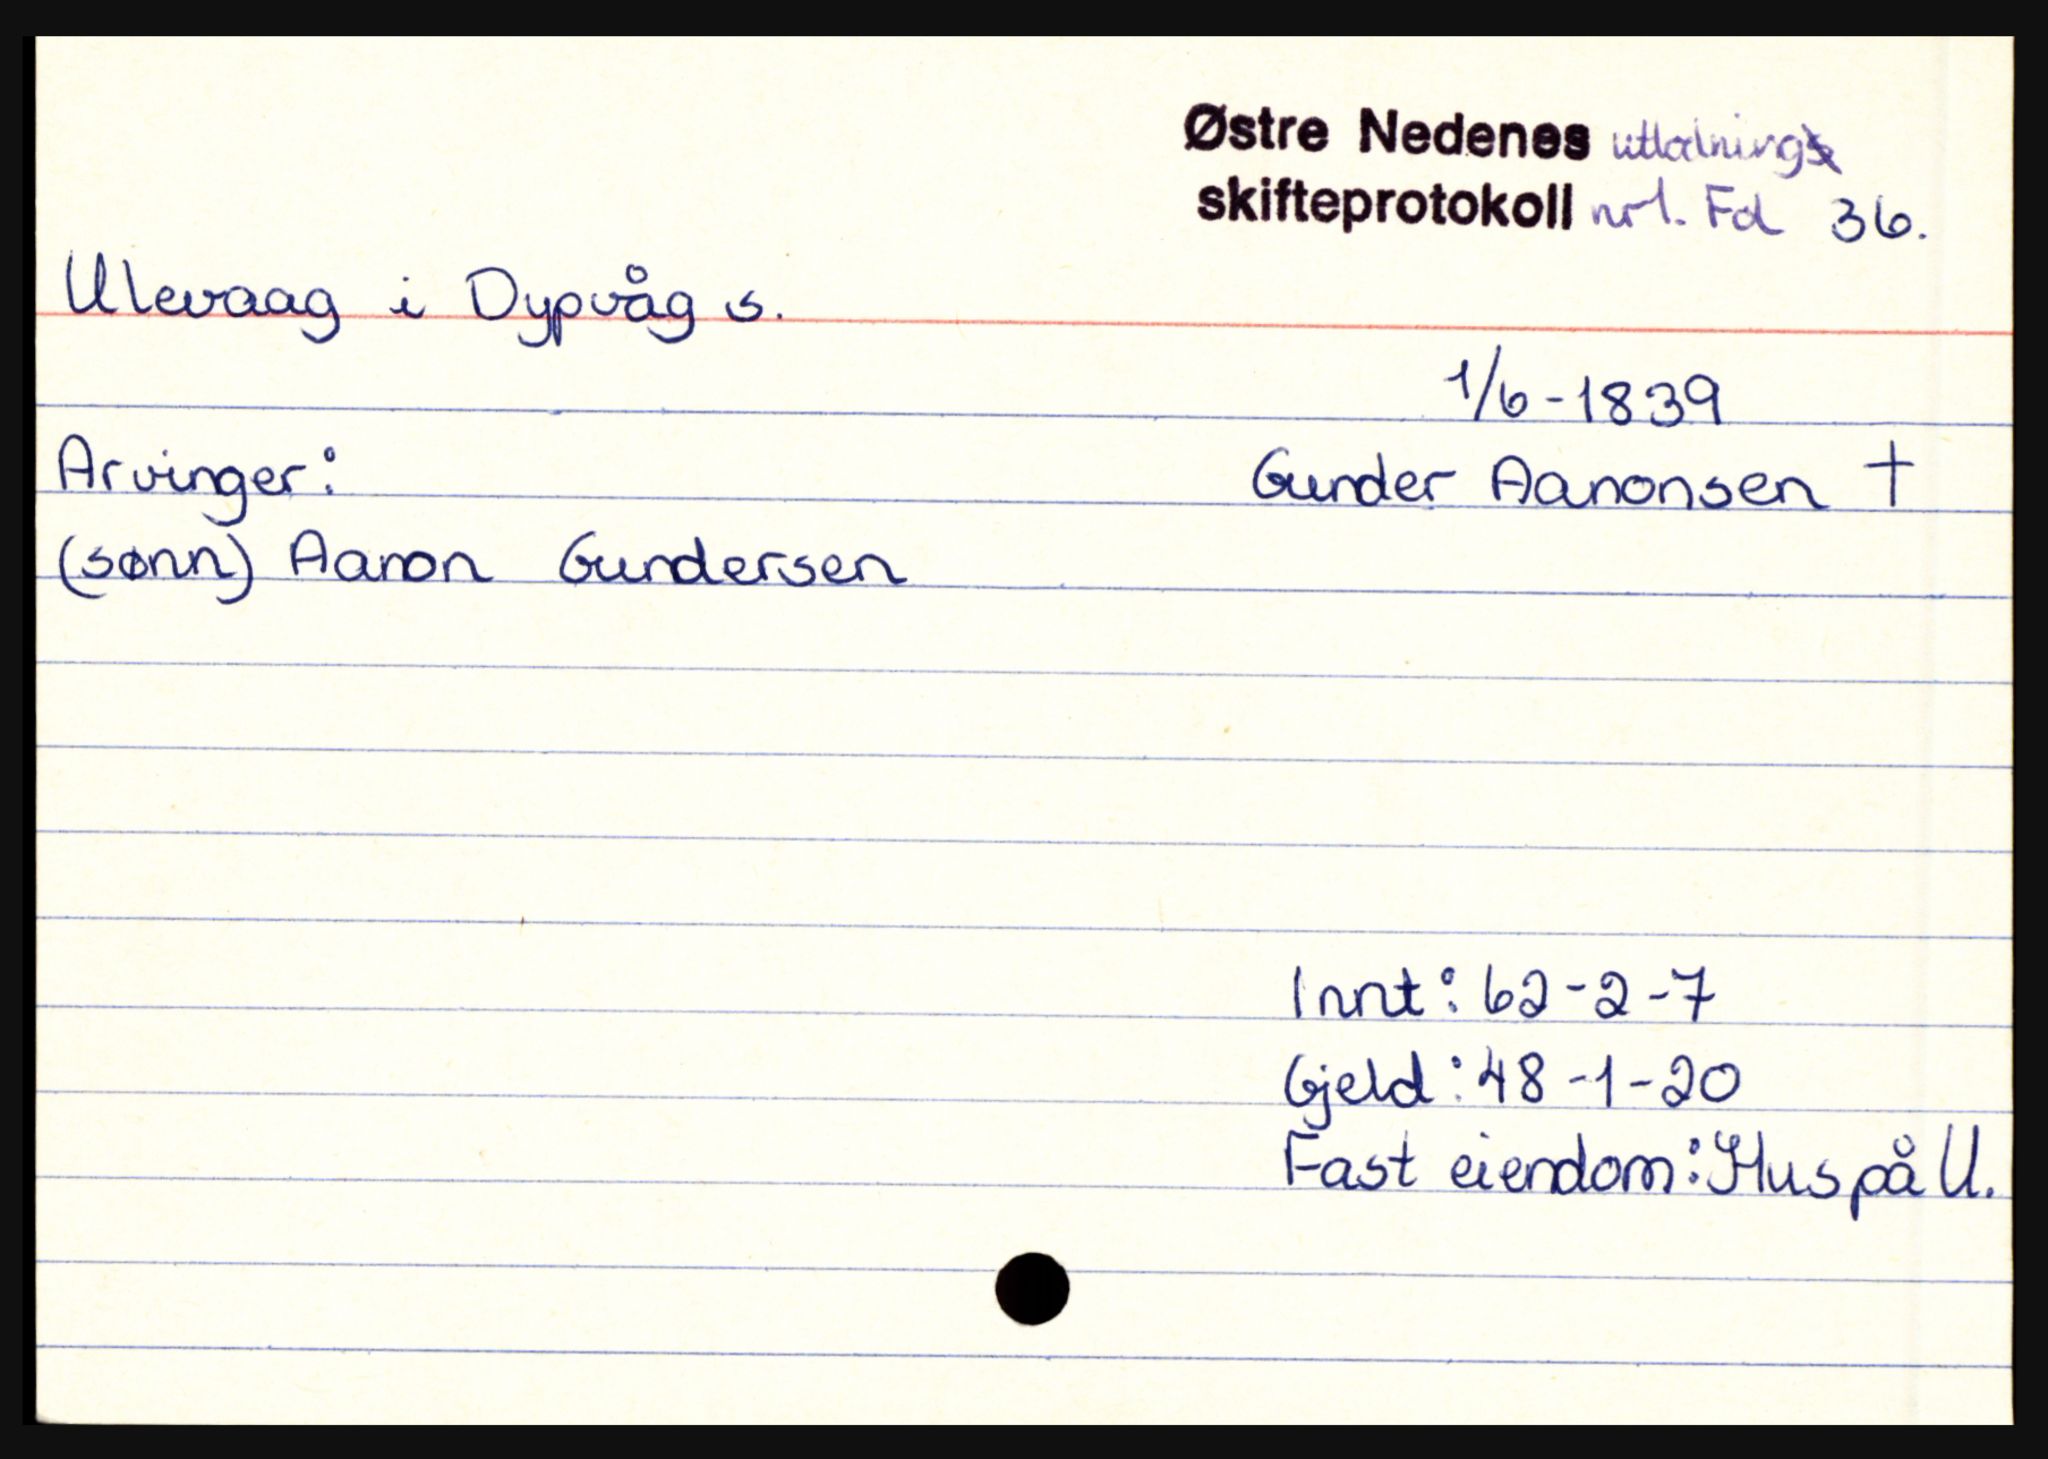 Østre Nedenes utlodnings
skifteprotokoll nr 1. Fd 36.
Ulevaag i Dypvåg s.
1/6-1839
Arvinger: Gunder Aanonsen †
(sønn) Aanon Gundersen
Innt: 62-2-7
Gjeld: 48-1-20
Fast eiendom: Hus på U.